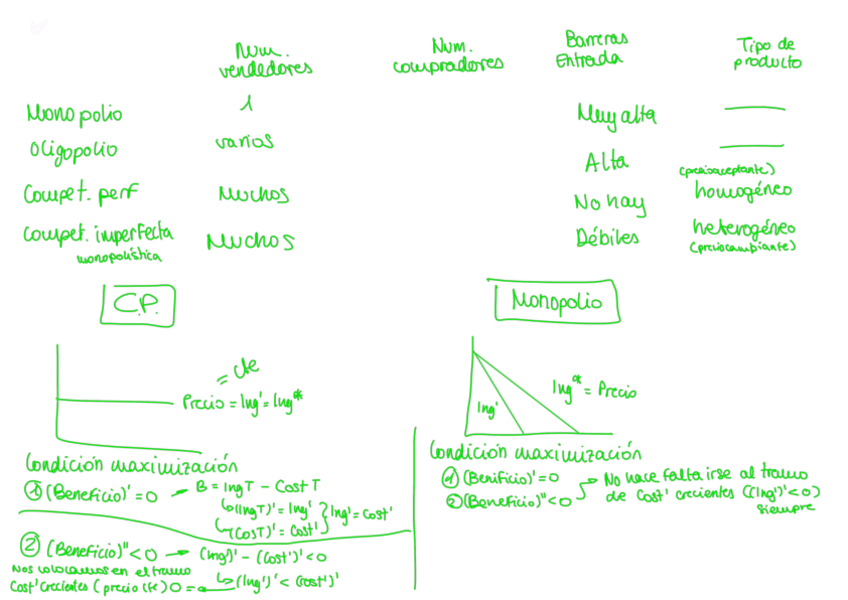 Num. vendedores
Num. compradores
Barreras Entrada
Tipo de producto
Monopolio 1 Muy alta ——
Oligopolio varios Alta ——
Compet. perf Muchos No hay (precioaceptante) homogéneo
Compet. imperfecta monopolística Muchos Débiles heterogéneo (preciocambiante)
C.P.
= cte
Precio = Ing' = Ing*
Condición maximización
① (Beneficio)' = 0 → B = IngT - CostT
(IngT)' = Ing'
(CosT)' = Cost'
} Ing' = Cost'
② (Beneficio)'' < 0 → (Ing')' - (Cost')' < 0
Nos colocamos en el tramo
Cost' crecientes (precio cte) 0 = (Ing')' < (Cost')'
Monopolio
Ing'
Ing* = Precio
Condición maximización
① (Benificio)' = 0
② (Beneficio)'' < 0 → No hace falta irse al tramo
de Cost' crecientes ((Ing')' < 0)
siempre